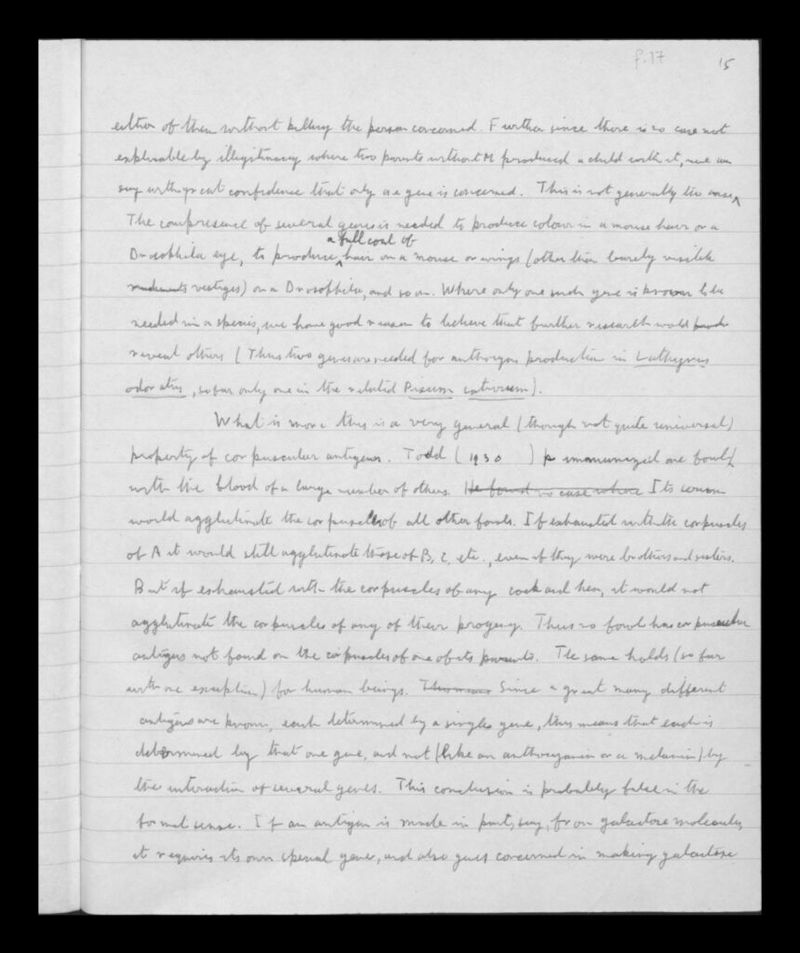 f.17 15
either of them without killing the person concerned. Further since there is no case not
explicable by illegitimacy where two parents without M produced a child with it, we can
say with great confidence that only one gene is concerned. This is not generally the case.
The compresence of several genes is needed to produce colour in a mouse hair or a
a full coat of
Drosophila eye, to produce hair on a mouse or wings (other than barely visible
rudiments vestiges) on a Drosophila, and so on. Where only one such gene is known to be
needed in a species, we have good reason to believe that further research would
reveal others (Thus two genes are needed for anthocyan production in Lathyrus
odoratus, so far only one in the related Pisum sativum).
What is more this is a very general (though not quite universal)
property of corpuscular antigens. Todd (1930 ) immunized one fowl
with the blood of a large number of others. He found no case where Its serum
would agglutinate the corpuscles of all other fowls. If exhausted with the corpuscles
of A it would still agglutinate those of B, C, etc., even if they were brothers and sisters.
But if exhausted with the corpuscles of any cock and hen, it would not
agglutinate the corpuscles of any of their progeny. Thus no fowl has corpuscular
antigens not found on the corpuscles of one of its parents. The same holds (so far
with one exception) for human beings. This means Since a great many different
antigens are known, each determined by a single gene, this means that each is
determined by that one gene, and not (like an anthocyanin or a melanin) by
the interaction of several genes. This conclusion is probably false in the
formal sense. If an antigen is made in part, say, from galactose molecules,
it requires its own special gene, and also genes concerned in making galactose